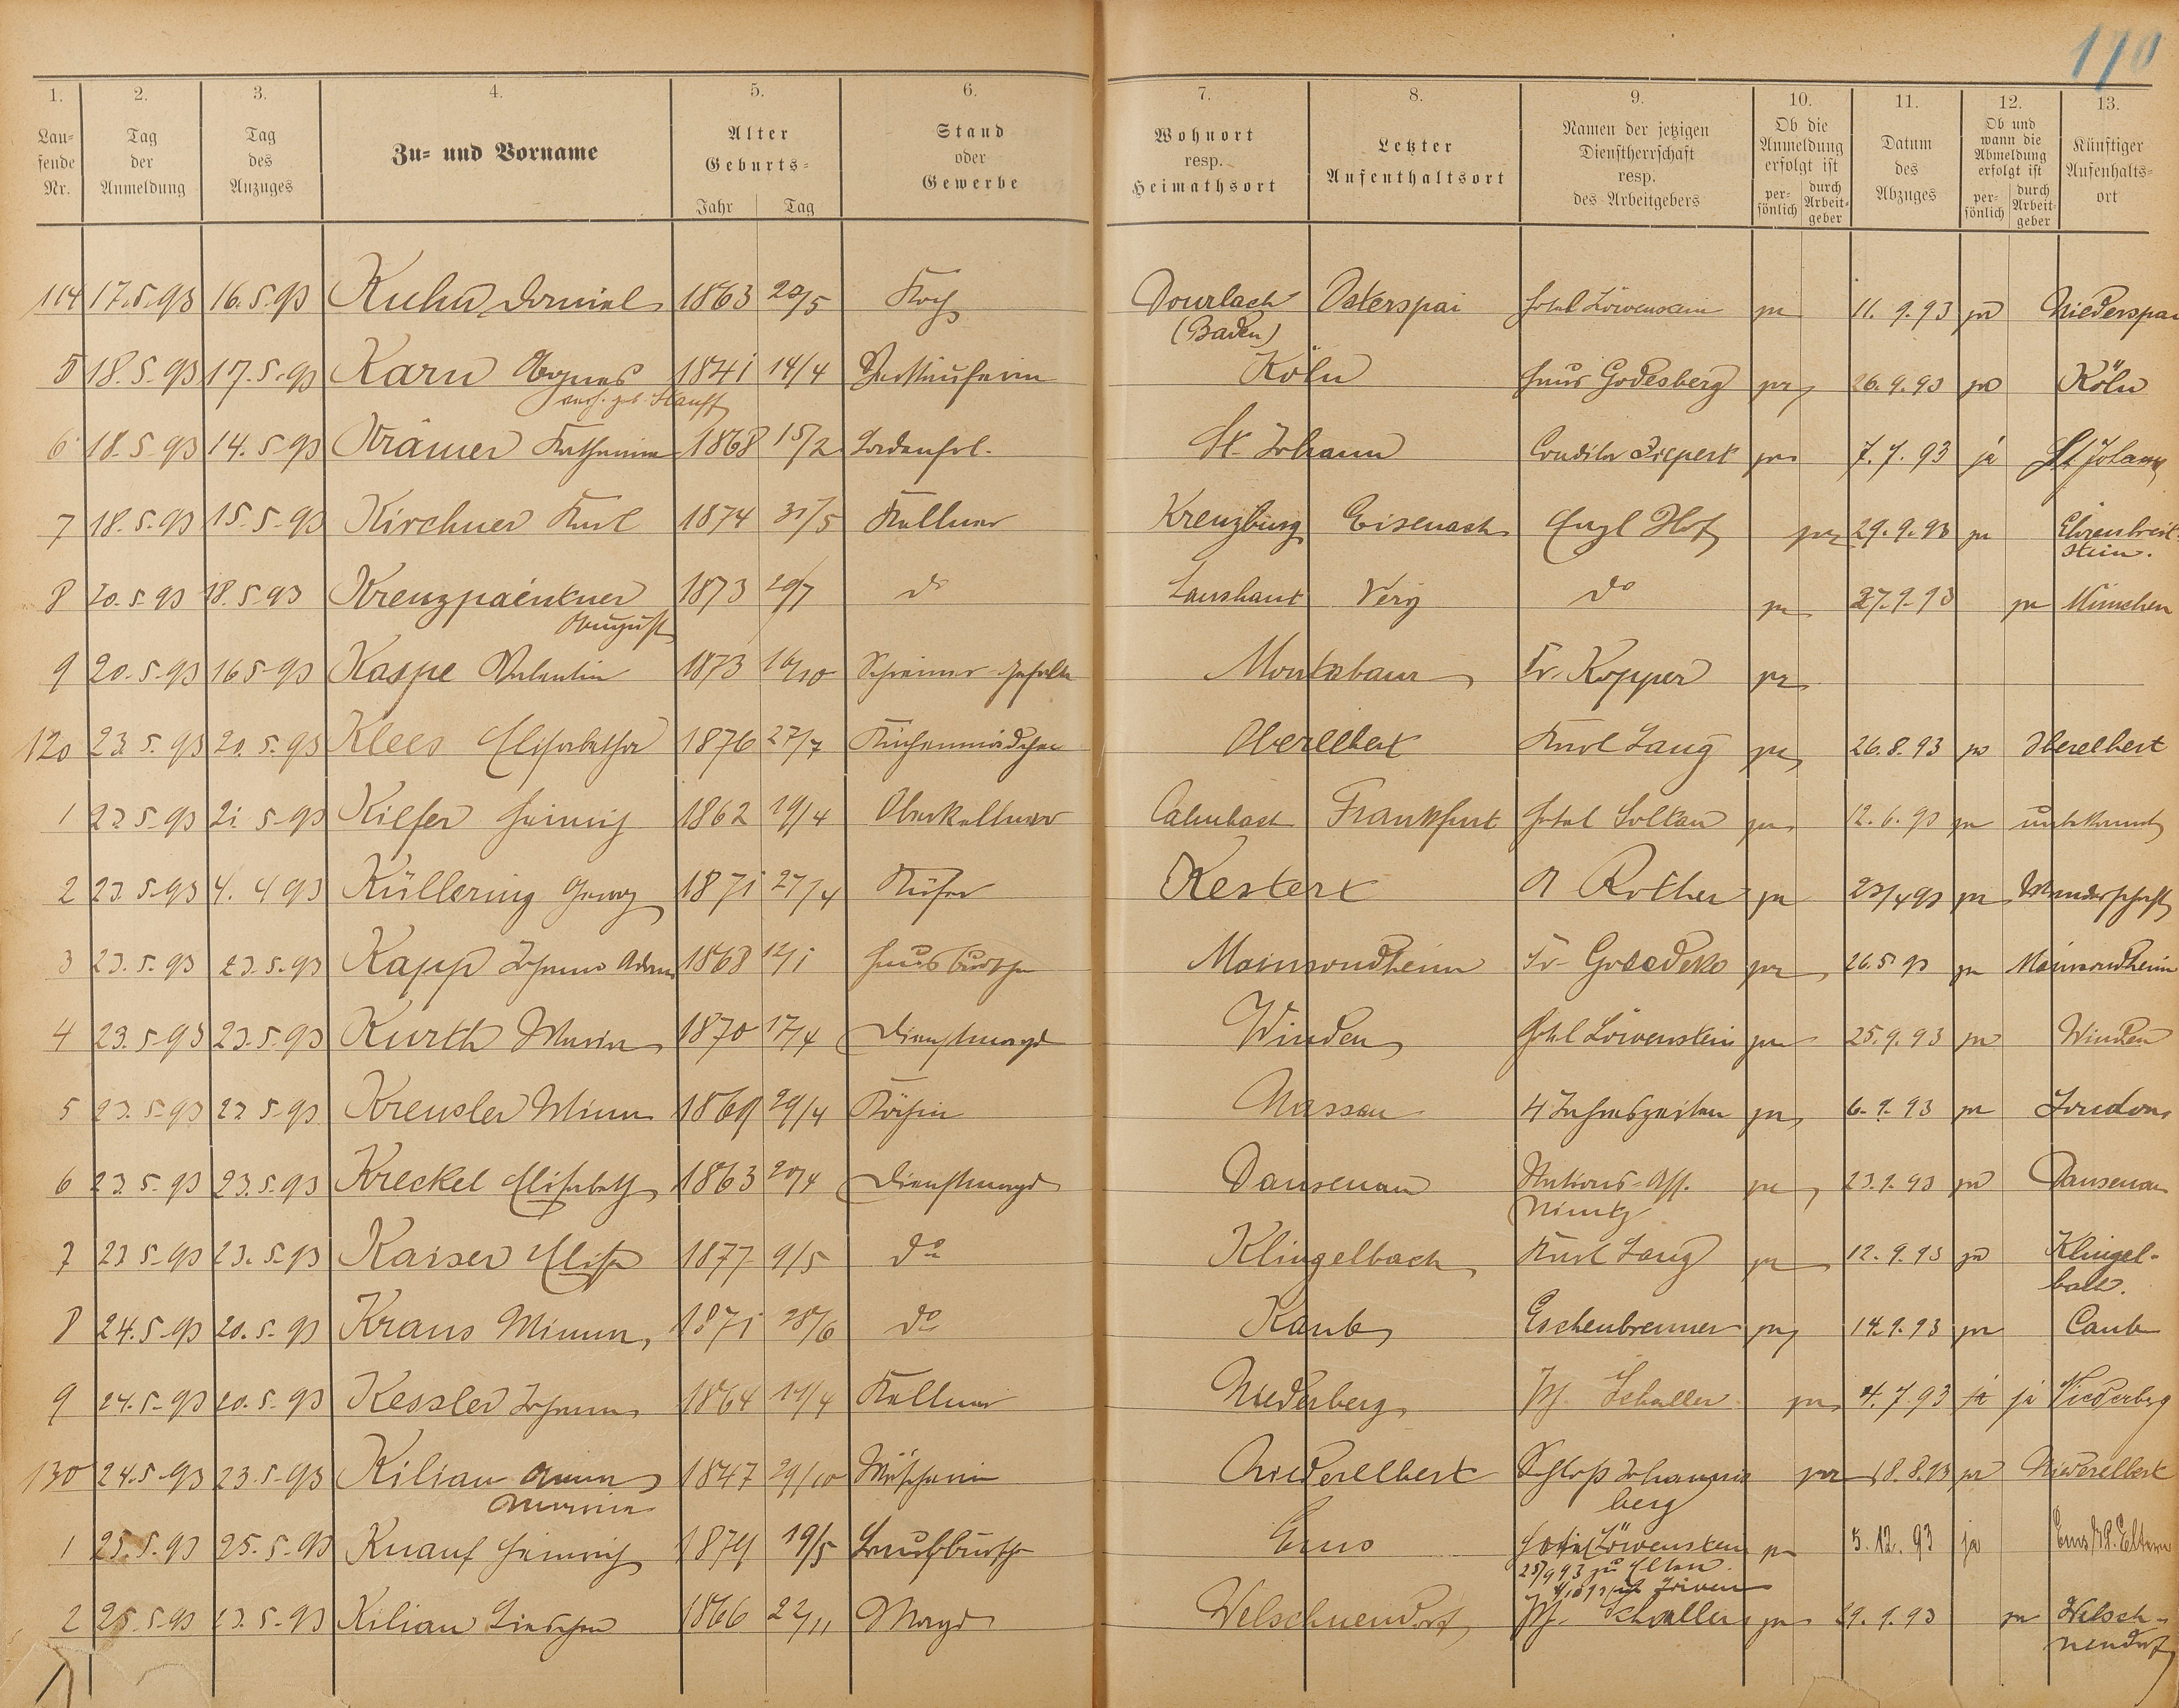 1. 2. 3. 4. 5. 6. 7. 8. 9. 10. 11. 12. 13.
Lau-
fende
Nr.
Tag
der
Anmeldung
Tag
des
Anzuges
Zu- und Vorname
Alter
Geburts-
Jahr Tag
Stand
oder
Gewerbe
Wohnort
resp.
Heimathsort
Letzter
Aufenthaltsort
Namen der jetzigen
Dienstherrschaft
resp.
des Arbeitgebers
Ob die
Anmeldung
erfolgt ist
per-
sönlich
durch
Arbeit-
geber
Datum
des
Abzuges
Ob und
wann die
Abmeldung
erfolgt ist
per-
sönlich
durch
Arbeit-
geber
Künftiger
Aufenhalts-
ort
114 17.5.93 16.5.93 Kuhn Daniel 1863 20/5 Koch Dourlach Osterspai Hotel Löwenstein ja 11.9.93 ja Niederspai
(Baden)
5 18.5.93 17.5.93 Karn Agnes 1841 14/4 Verkäuferin Köln Haus Godesberg ja 26.9.93 ja Köln
geb. Hauff
6 18.5.93 14.5.93 Krämer Katharina 1868 15/2 Ladenfrl. St. Johann Conditor ja 7.7.93 ja St. Johann
7 18.5.93 15.5.93 Kirchner Karl 1874 31/5 Kellner Kreuzburg Eisenach Engl Hof ja 29.9.93 ja Ehrenbreit-
stein.
8 20.5.93 18.5.93 Kreuzpaintner 1873 29/7 do Lanshaut do ja 27.9.93 ja München
August
9 20.5.93 16 5 93 Kaspe Valentin 1873 16/10 Schreiner-Gehülfe Montabaur Fr. Kopper ja
120 23.5.93 20.5.93 Klees Elisabetha 1876 27/7 Küchenmädchen Oberelbert Karl Lang ja 26.8.93 ja Oberelbert
1 23.5.93 21.5.93 Kiefer Heinrich 1862 19/4 Oberkellner Calmbach Frankfurt Hotel ja 12.6.93 ja unbekannt
2 23.5.93 4.4.93 Küllering Georg 1871 27/4 Küfer Kestert A Rother ja ja Wanderschaft
3 23.5.93 23.5.93 Kapp Johann Adam 1868 12/1 Hausbursche Mainsondheim Fr. ja 26.5.93 ja Mainsondheim
4 23.5.93 23.5.93 Kurth Maria 1870 17/4 Dienstmagd Winden Hotel Löwenstein ja 25.9.93 ja Winden
5 23.5.93 23.5.93 Kreusler Minna 1869 29/4 Köchin Nassau 4 Jahreszeiten ja 6.9.93 ja London
6 23.5.93 23.5.93 Kreckel Elisabeth 1863 Dienstmagd Dausenau Stations-Ass. ja 23.9.93 ja Dausenau
7 23.5.93 23.5.93 Kaiser Elise 1877 9/5 do Klingelbach Karl Lang ja 12.9.93 ja Klingel-
bach.
8 24.5.93 20.5.93 Kraus Minna 1871 28/6 do Kaub Eschenbrenner ja 14.9.93 ja Caub
9 24.5.93 20.5.93 Kessler Johann 1864 Kellner Niederberg Schaller ja 4.7.93 ja ja Niederberg
130 24.5.93 23.5.93 Kilian Anna 1847 29/10 Wäscherin Niederelbert Schloß Johannis ja 18.8.93 ja Niederelbert
Maria berg
1 25.5.93 25.5.93 Knauf Heinrich 1879 19/5 Laufbursche Ems Hotel Löwenstein ja 5.12.93 ja Ems Eltern
2 25.5.93 23.5.93 Kilian Lieschen 1866 22/11 Magd Welschneudorf Schaller ja 29.9.93 ja Welsch-
neudorf